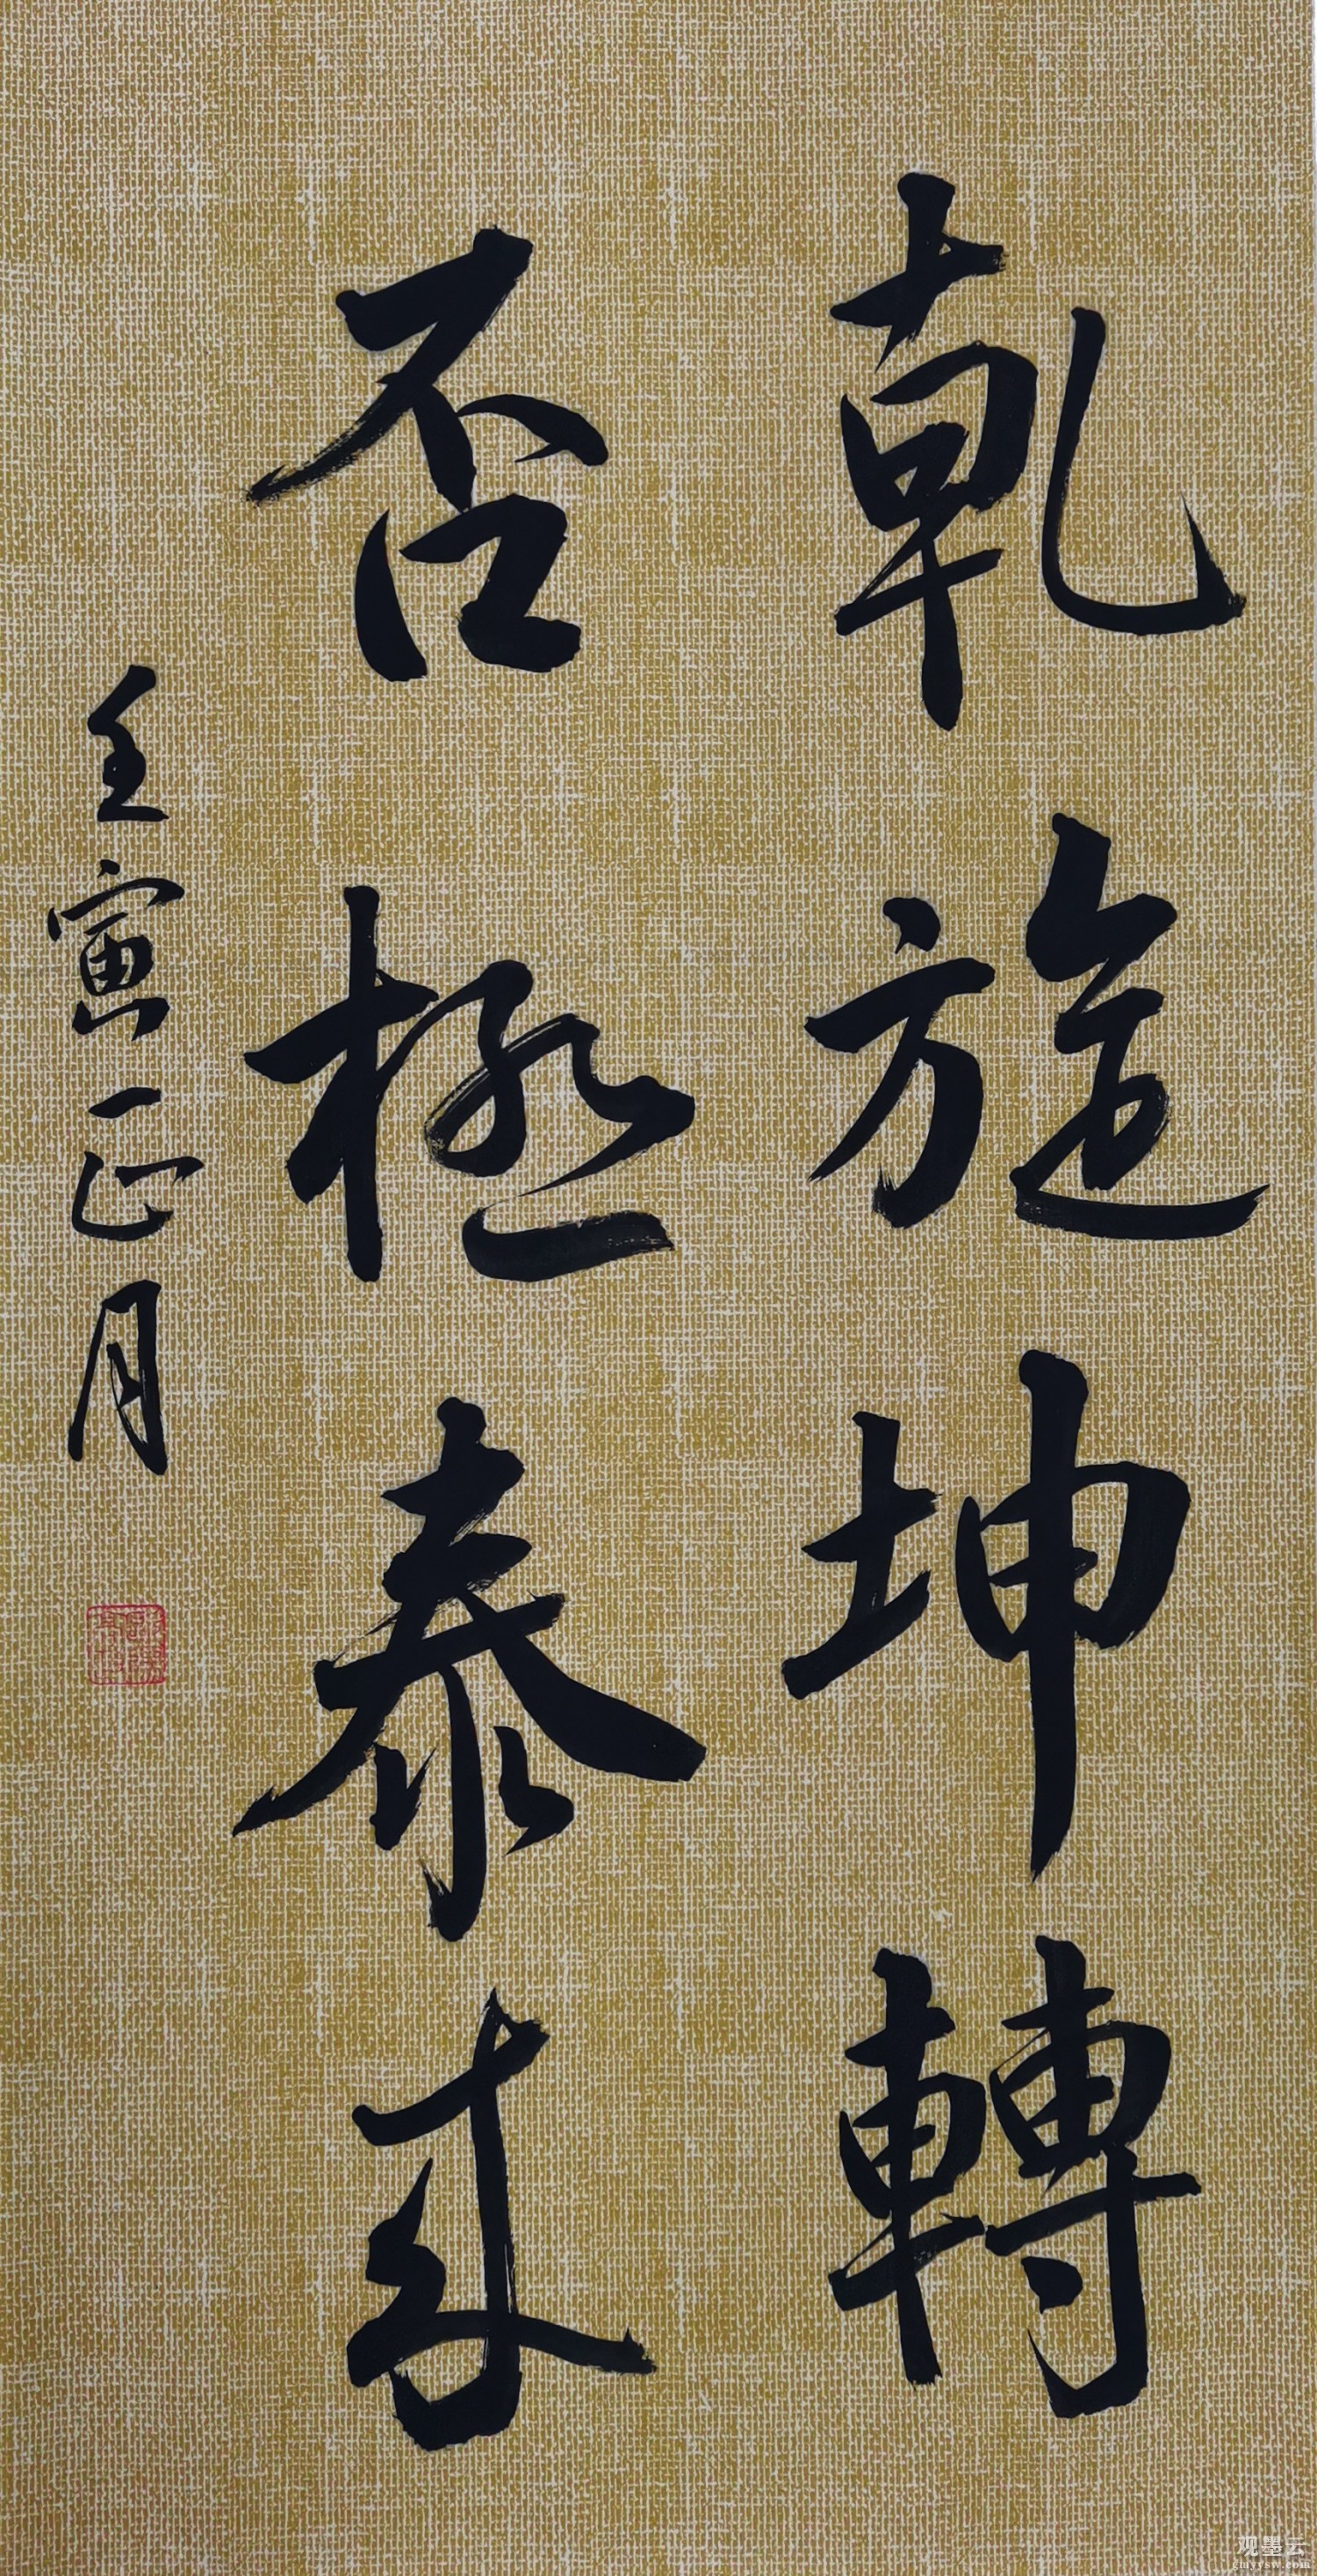 乾旋坤轉
否極泰来
壬寅正月
观墨云
gmyysw.com